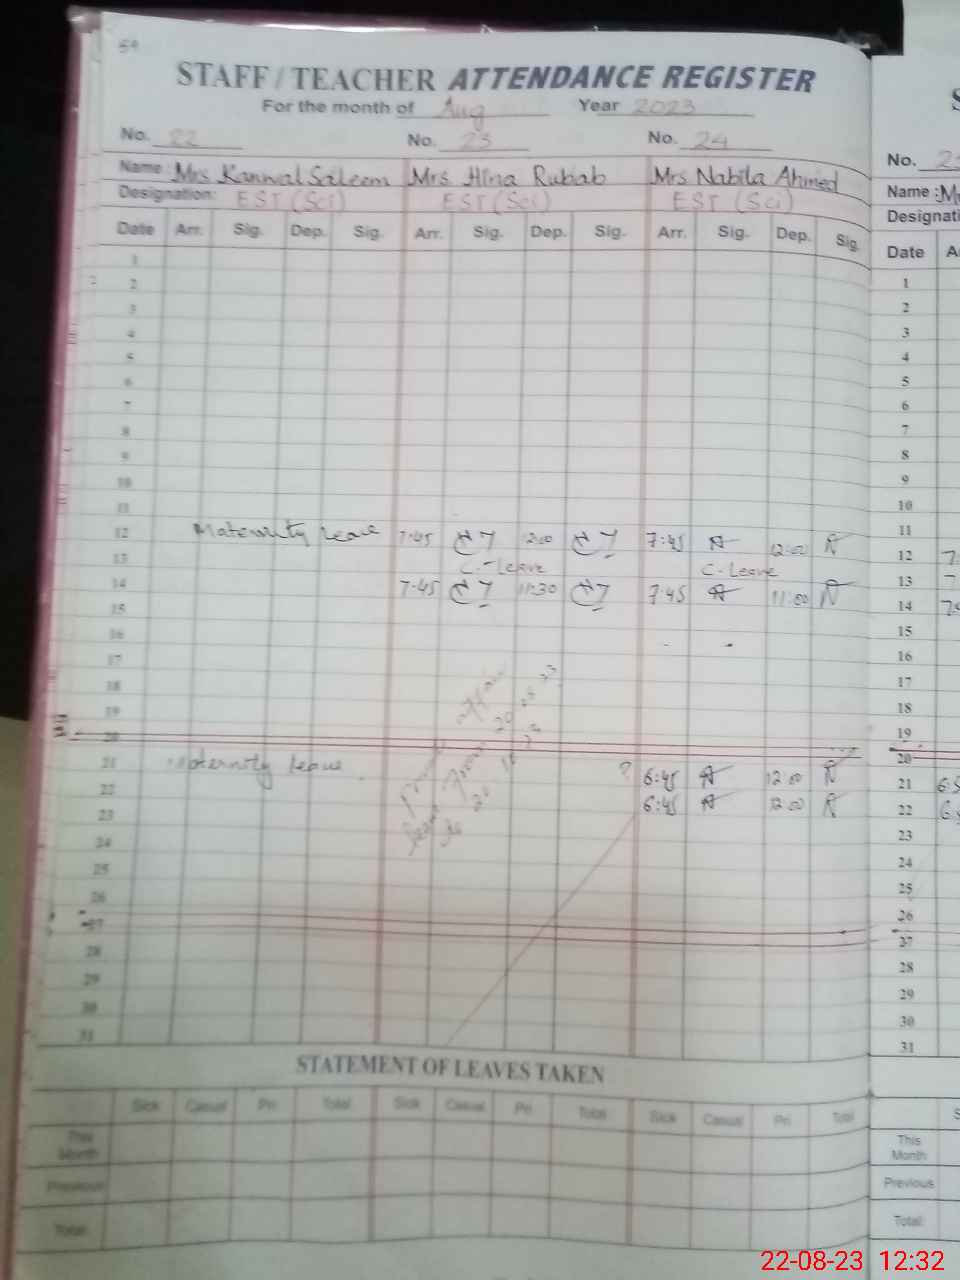 59
STAFF / TEACHER ATTENDANCE REGISTER
For the month of Aug Year 2023
No. 22 No. 23 No. 24
Name : Mrs Kanwal Saleem Mrs Hina Rubab Mrs Nabila Ahmed
Designation: EST (Sci) EST (Sci) EST (Sci)
Date Arr. Sig. Dep. Sig. Arr. Sig. Dep. Sig. Arr. Sig. Dep. Sig.
1
2
3
4
5
6
7
8
9
10
11
12 Maternity Leave 7:45 12:00 7:45 12:00
13 C-Leave C-Leave
14 7:45 11:30 7:45 11:00
15
16
17
18
19
20
21 Maternity leave ? 6:45 12:00
22 6:45 12:00
23
24
25
26
27
28
29
30
31
20 08 23
STATEMENT OF LEAVES TAKEN
Sick Casual Pri Total Sick Casual Pri Total Sick Casual Pri Total
This Month
Previous
Total
No.
Name :
Date
1
2
3
4
5
6
7
8
9
10
11
12
13
14
15
16
17
18
19
20
21
22
23
24
25
26
27
28
29
30
31
This Month
Previous
Total
22-08-23 12:32